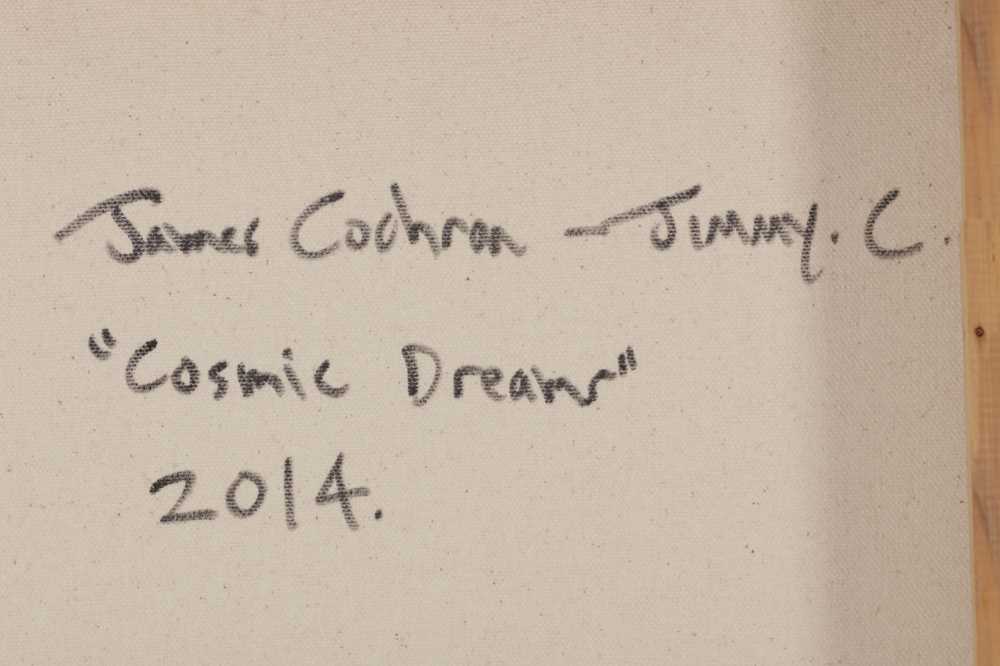 James Cochran – Jimmy. C.
"Cosmic Dreams"
2014.